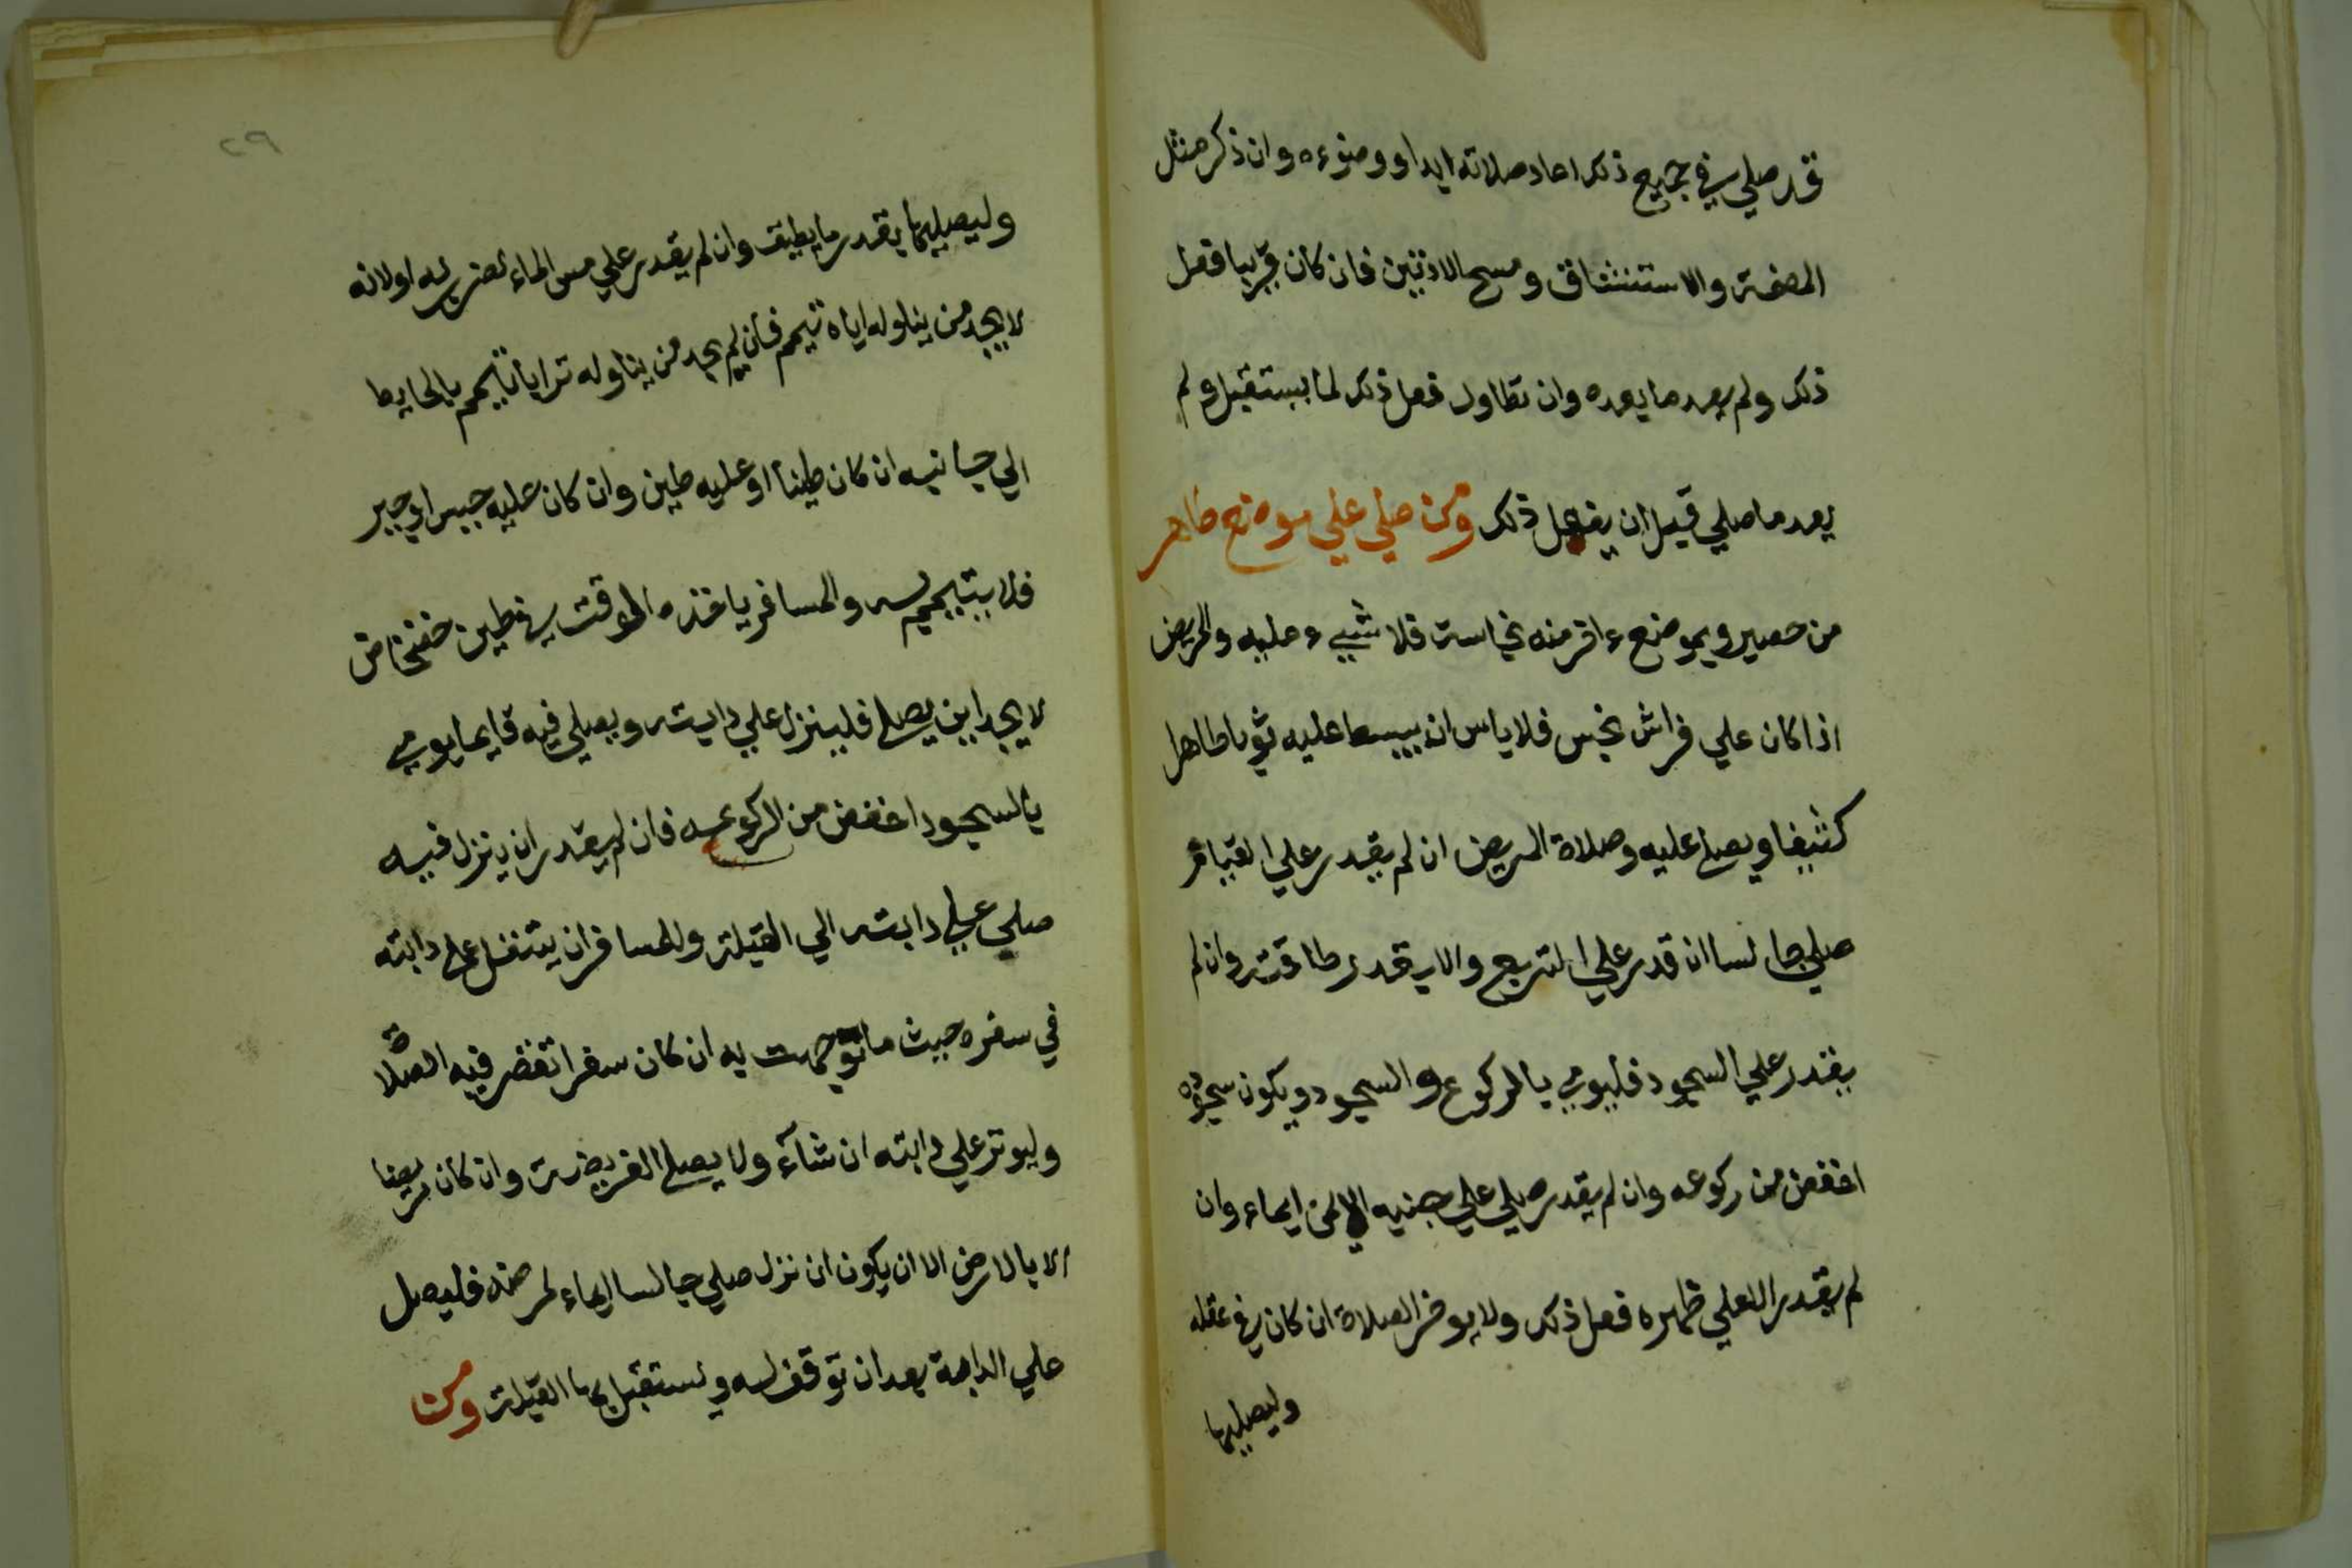 قد صلي في جميع ذلك اعاد صلاته ابدا ووضوءه وان ذكر مثل
المضمضة والاستنشاق ومسح الاذنين فان كان قريبا فعل
ذلك ولم يعد ما بعده وان تطاول فعل ذلك لما يستقبل ولم
يعد ما صلي قبل ان يفعل ذلك ومن صلي علي موضع طاهر
من حصير وبموضع ءاخر منه نجاسة فلا شيء عليه والمريض
اذا كان علي فراش نجس فلا باس ان يبسط عليه ثوبا طاهرا
كثيفا ويصلي عليه وصلاة المريض ان لم يقدر علي القيام
صلي جالسا ان قدر علي التربع والا بقدر طاقته وان لم
يقدر علي السجود فليومي بالركوع والسجود ويكون سجوده
اخفض من ركوعه وان لم يقدر صلي علي جنبه الايمن ايماء وان
لم يقدر الا علي ظهره فعل ذلك ولا يوخر الصلاة ان كان في عقله
وليصليها
٢٩
وليصليها بقدر ما يطيق وان لم يقدر علي مس الماء لضرر به او لانه
لا يجد من يناوله اياه تيمم فان لم يجد من يناوله ترابا تيمم بالحايط
الي جانبه ان كان طينا او عليه طين وان كان عليه جبس او جير
فلا يتيمم به والمسافر ياخذه الوقت في طين خضخاض
لا يجد اين يصلي فلينزل علي دابته ويصلي فيه قايما يومي
بالسجود اخفض من الركوع فان لم يقدر ان ينزل فيه
صلي علي دابته الي القبلة وللمسافر ان يتنفل علي دابته
في سفره حيث ما توجهت به ان كان سفرا تقصر فيه الصلاة
وليوتر علي دابته ان شآء ولا يصلي الفريضة وان كان مريضا
الا بالارض الا ان يكون ان نزل صلي جالسا ايماء لمرضه فليصل
علي الدابة بعد ان توقف له ويستقبل بها القبلة ومن